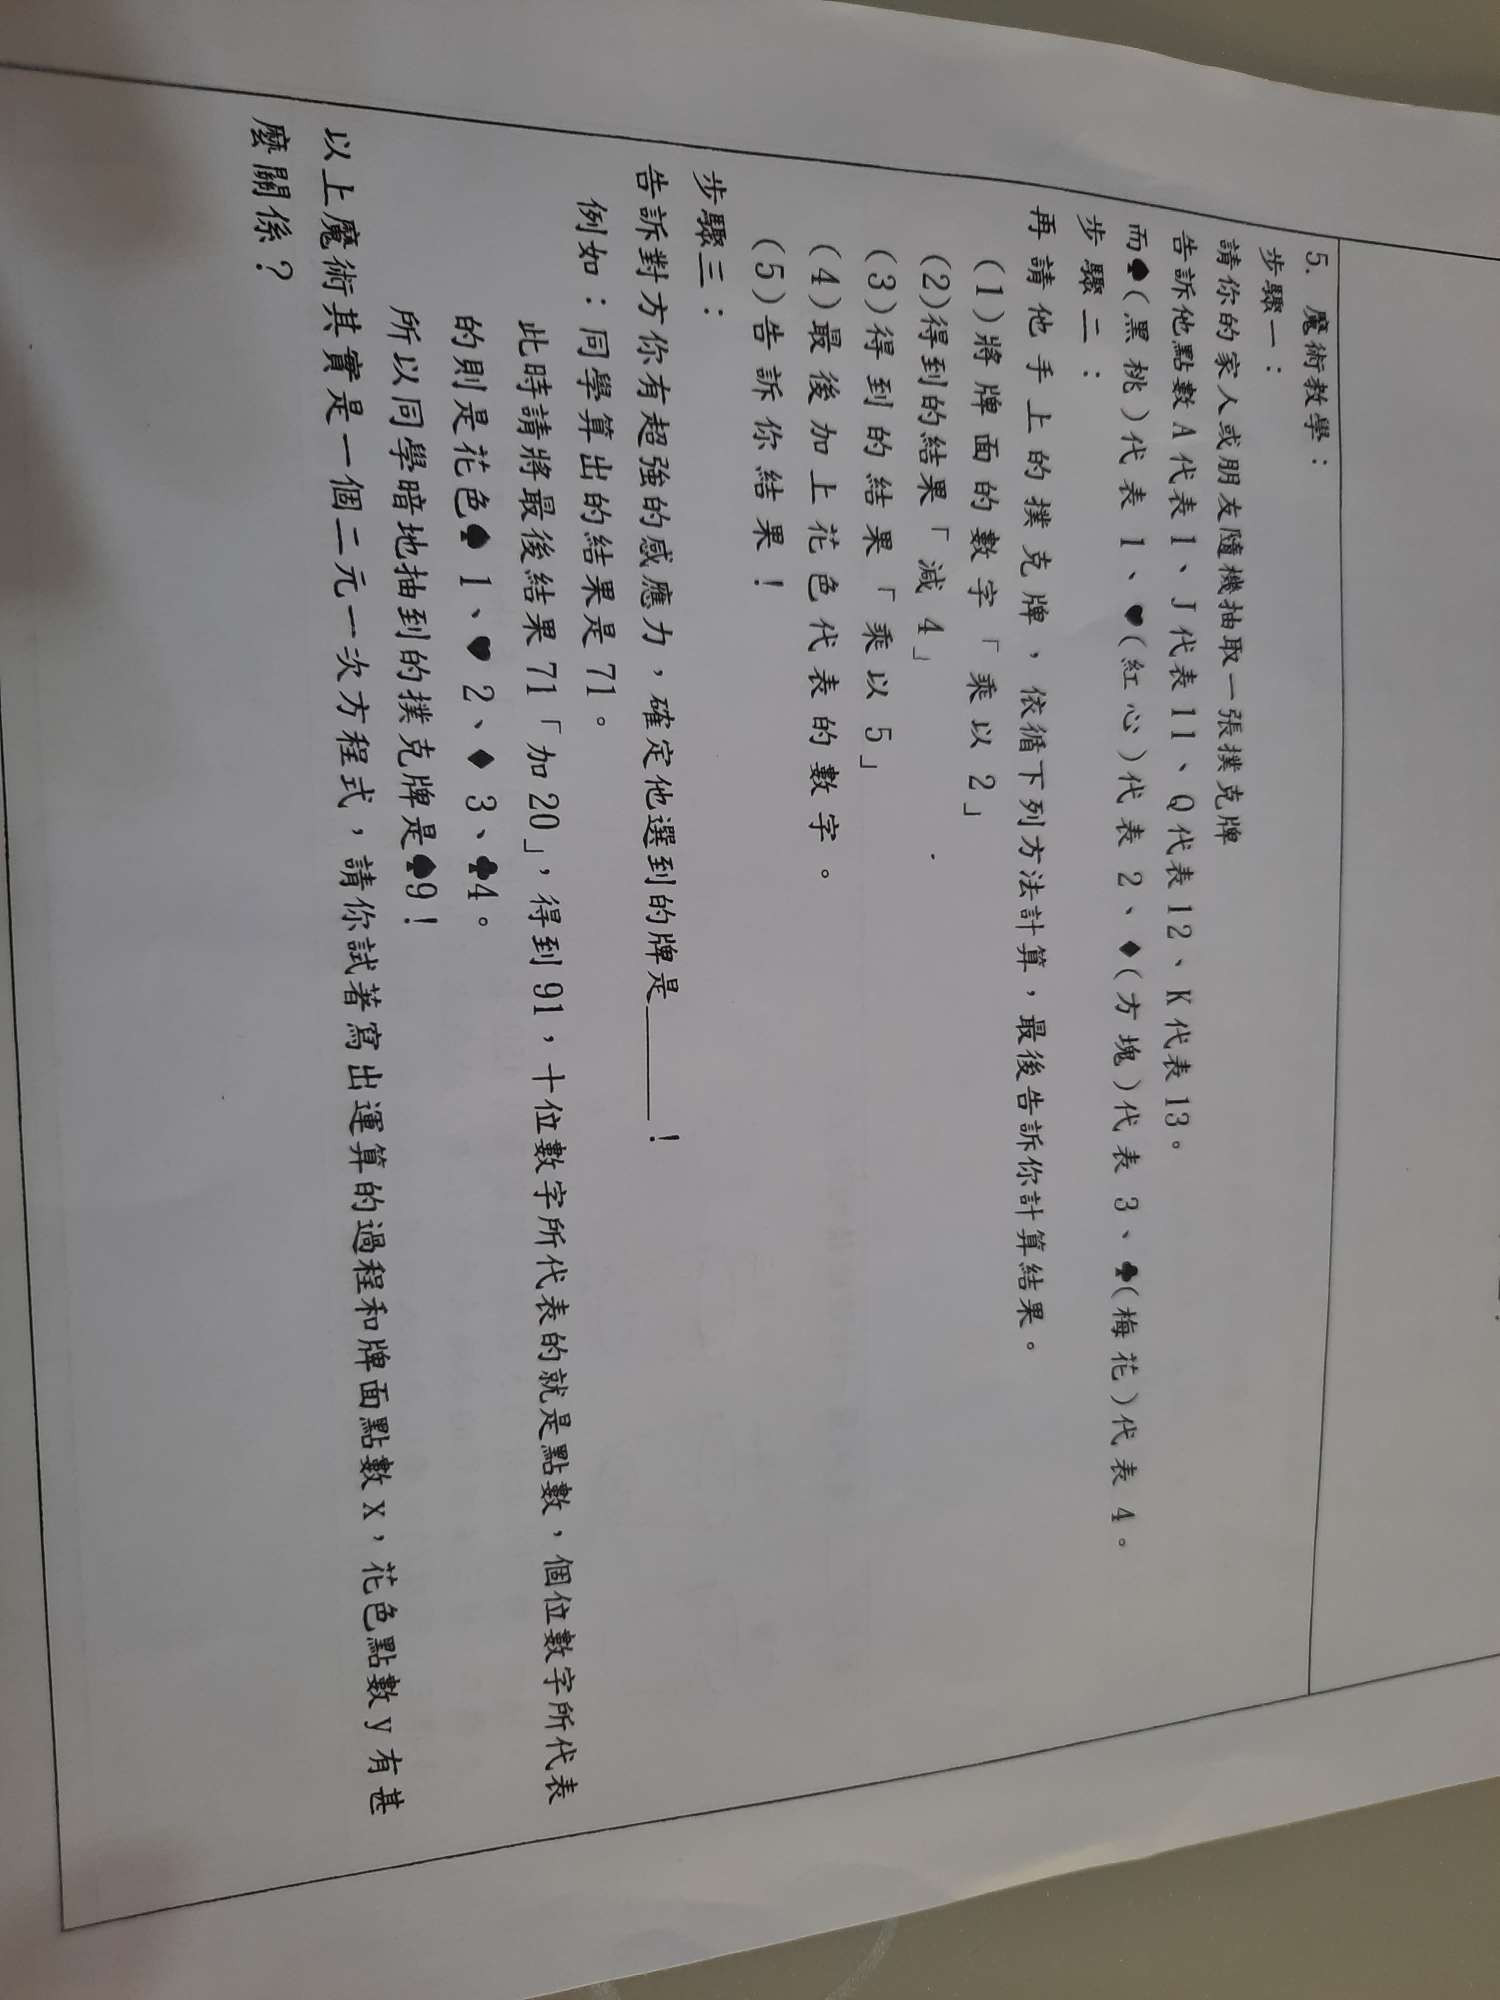 5. 魔術教學：
步驟一：
請你的家人或朋友隨機抽取一張撲克牌
告訴他點數A代表1、J代表11、Q代表12、K代表13。
而♠(黑桃)代表1、♥(紅心)代表2、♦(方塊)代表3、♣(梅花)代表4。
步驟二：
再請他手上的撲克牌、依循下列方法計算，最後告訴你計算結果。
(1)將牌面的數字「乘以2」
(2)得到的結果「減4」
(3)得到的結果「乘以5」
(4)最後加上花色代表的數字。
(5)告訴你結果！
步驟三：
告訴對方你有超強的感應力，確定他選到的牌是______！
例如：同學算出的結果是71。
此時請將最後結果71「加20」，得到91，十位數字所代表的就是點數，個位數字所代表
的則是花色♠1、♥2、♦3、♣4。
所以同學暗地抽到的撲克牌是♠9！
以上魔術其實是一個二元一次方程式，請你試著寫出運算的過程和牌面點數x，花色點數y有甚
麼關係？